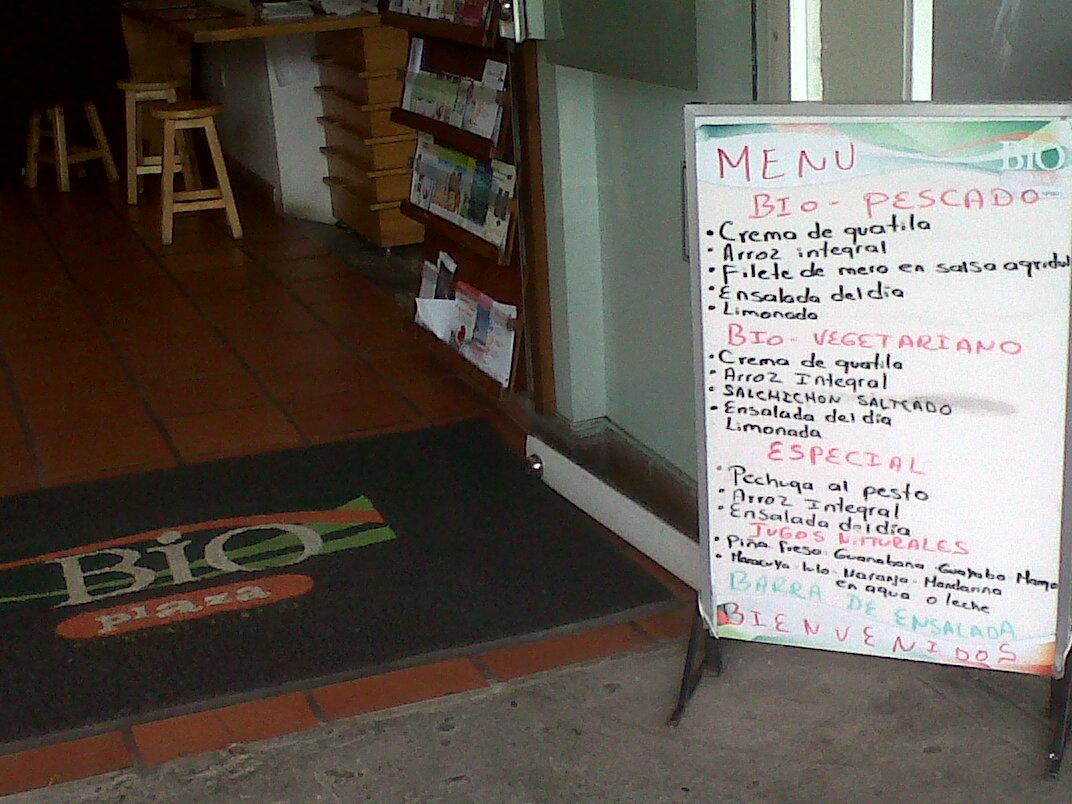 MENU
BIO
BIO - PESCADO
• Crema de quatila
• Arroz integral
• Filete de mero en salsa agridul
• Ensalada del dia
• Limonada
BIO - VEGETARIANO
• Crema de quatila
• Arroz Integral
• SALCHICHON SALTEADO
• Ensalada del dia
Limonada
ESPECIAL
• Pechuga al pesto
• Arroz Integral
• Ensalada del dia
JUGOS NATURALES
• Piña. Fresa. Guanabana. Guayaba. Mango
• Maracuya. Lulo. Naranja. Mandarina
en agua o leche
BARRA DE ENSALADA
BIENVENIDOS
BIO
plaza